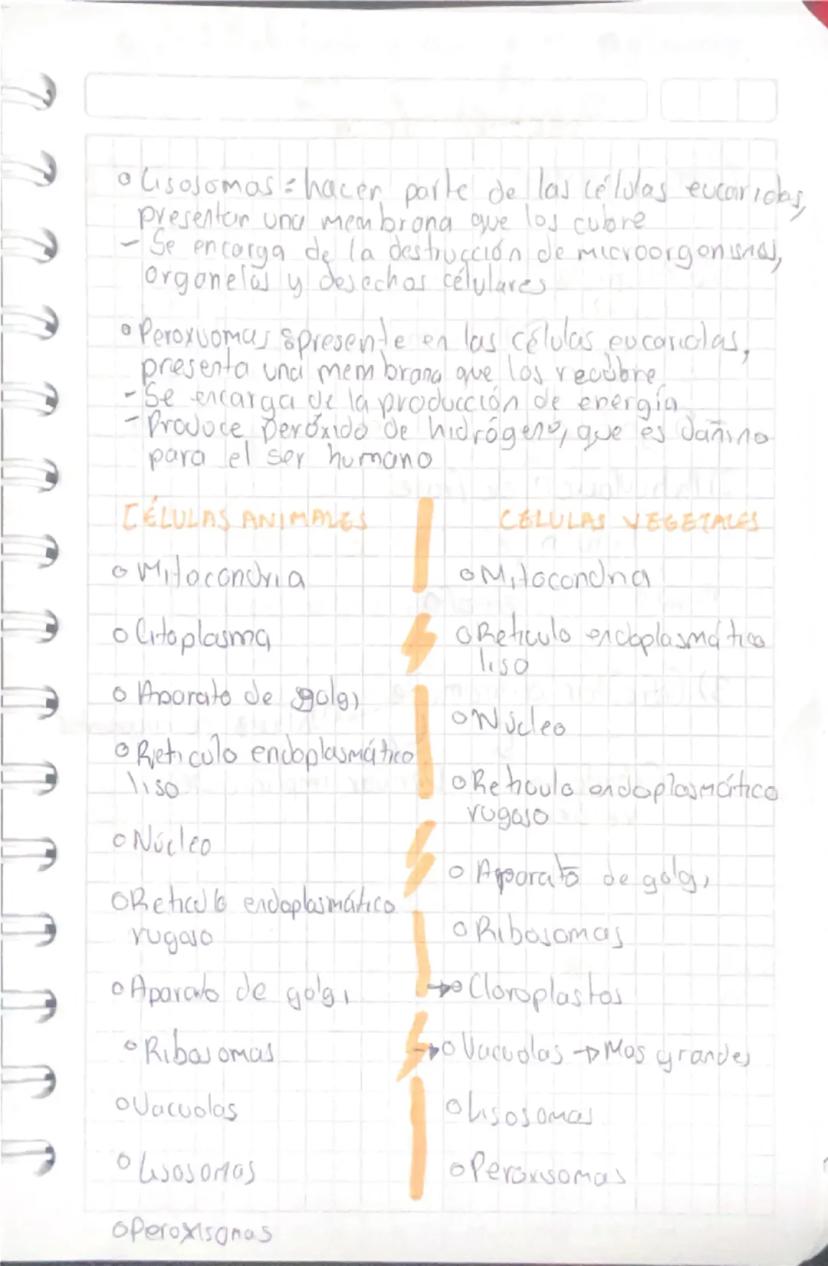 o Lisosomas = hacen parte de las células eucariotas,
presentan una membrana que los cubre
- Se encarga de la destrucción de microorganismos,
organelas y desechos célulares
o Peroxisomas = presente en las células eucariotas,
presenta una membrana que los recubre
- Se encarga de la producción de energía
- Produce peróxido de hidrógeno, que es dañino
para el ser humano
CÉLULAS ANIMALES
o Mitocondria
o Citoplasma
o Aparato de golgi
o Reticulo endoplasmático
liso
o Núcleo
o Reticulo endoplasmático
rugoso
o Aparato de golgi
o Ribosomas
o Vacuolas
o Lisosomas
o Peroxisomas
CÉLULAS VEGETALES
o Mitocondria
o Reticulo endoplasmático
liso
o Núcleo
o Reticulo endoplasmático
rugoso
o Aparato de golgi
o Ribosomas
→o Cloroplastos
→o Vacuolas → Mas grandes
o Lisosomas
o Peroxisomas